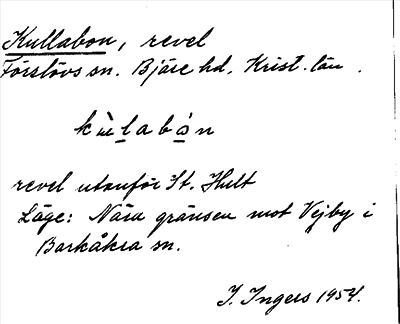 Kullabon, revel
Förslövs sn. Bjäre hd. Krist. län.
kùlabån
revel utanför St. Hult
Läge: Nära gränsen mot Vejby i
Barkåkra sn.
I. Ingers 1954.